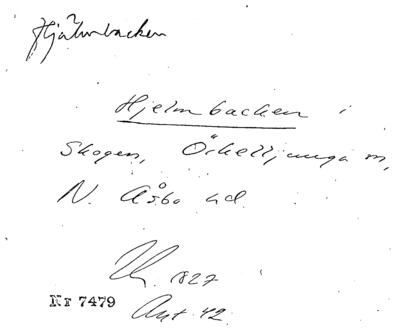 Hjälmbacken
Hjelmbacken i
Skogen, Örkelljunga m,
N. Åsbo hd.
1827
Nr 7479
Ant 42